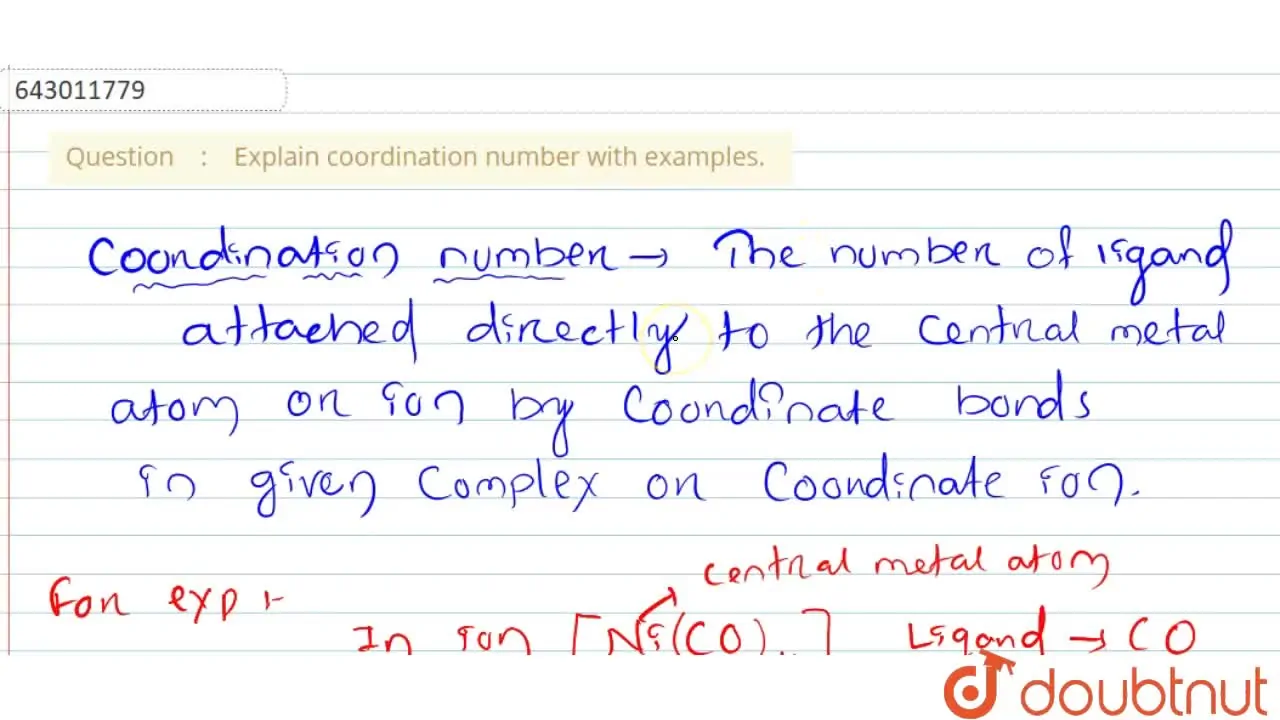 643011779
Question : Explain coordination number with examples.
Coordination number → The number of ligand
attached directly to the central metal
atom or ion by Coordinate bonds
in given Complex or Coordinate ion.
central metal atom
For exp :-
In ion [Ni(CO)..] Ligand → CO
doubtnut